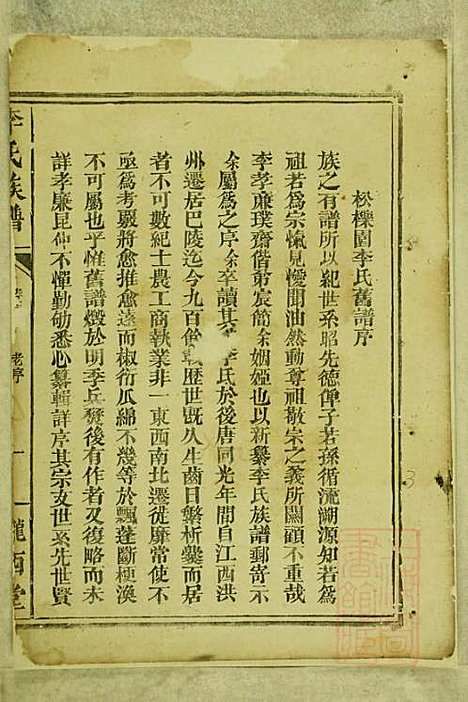 松櫟園李氏舊譜序
族之有譜所以紀世系昭先德俾子若孫循流溯源知若為
祖若為宗愾見僾聞油然動尊祖敬宗之義所關顧不重哉
李孝廉璞齋偕弟宸簡余姻婭也以新纂李氏族譜郵寄示
余屬為之序余卒讀其 李氏於後唐同光年間自江西洪
州遷居巴陵迄今九百餘 歷世既久生齒日繁析爨而居
者不可數紀士農工商執業非一東西南北遷徙靡常使不
亟為考覈將愈推愈遠而椒衍瓜綿不幾等於飄蓬斷梗渙
不可屬也乎惟舊譜燬於明季兵燹後有作者又復略而未
詳孝廉昆仲不憚勤劬悉心纂輯詳序其宗支世系先世賢
李氏族譜
老序
一
隴西堂
3